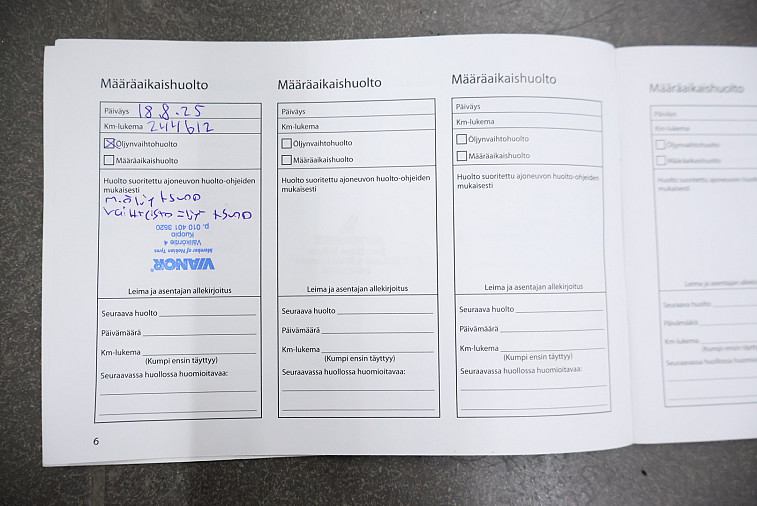 Määräaikaishuolto
Päiväys 18.8.25
Km-lukema 244612
Öljynvaihtohuolto
Määräaikaishuolto
Huolto suoritettu ajoneuvon huolto-ohjeiden
mukaisesti
m.öljyt+suod
vaihteisto öljyt+suod
p. 010 401 3620
Kuopio
Välikörntie 4
Member of Nokian Tyres
VIANOR
Leima ja asentajan allekirjoitus
Seuraava huolto
Päivämäärä
Km-lukema
(Kumpi ensin täyttyy)
Seuraavassa huollossa huomioitavaa:
6
Määräaikaishuolto
Päiväys
Km-lukema
Öljynvaihtohuolto
Määräaikaishuolto
Huolto suoritettu ajoneuvon huolto-ohjeiden
mukaisesti
Leima ja asentajan allekirjoitus
Seuraava huolto
Päivämäärä
Km-lukema
(Kumpi ensin täyttyy)
Seuraavassa huollossa huomioitavaa:
Määräaikaishuolto
Päiväys
Km-lukema
Öljynvaihtohuolto
Määräaikaishuolto
Huolto suoritettu ajoneuvon huolto-ohjeiden
mukaisesti
Leima ja asentajan allekirjoitus
Seuraava huolto
Päivämäärä
Km-lukema
(Kumpi ensin täyttyy)
Seuraavassa huollossa huomioitavaa:
Määräaikaishuolto
Päiväys
Km-lukema
Öljynvaihtohuolto
Määräaikaishuolto
Huolto suoritettu ajoneuvon huolto-ohjeiden
mukaisesti
Leima ja asentajan
Seuraava huolto
Päivämäärä
Km-lukema
(Kumpi ensin täyttyy)
Seuraavassa huollossa huomioitavaa: